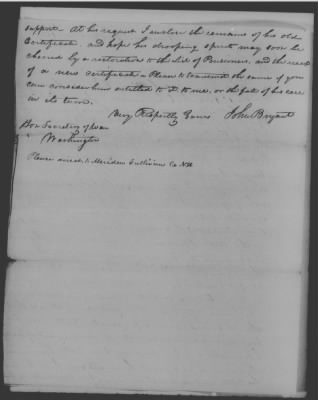 support. At his request I enclose the remains of his old
Certificate, and hope his drooping spirits may soon be
cheered by a restoration to the List of Pensioners, and the receipt
of a new certificate. Please to transmit the same if you
can consider him entitled to it to me, or the fate of his case
in its turn.
Very Respectfly Yours John Bryant
Hon Secretary of War
Washington
Please direct to Meriden Sullivan Co NH